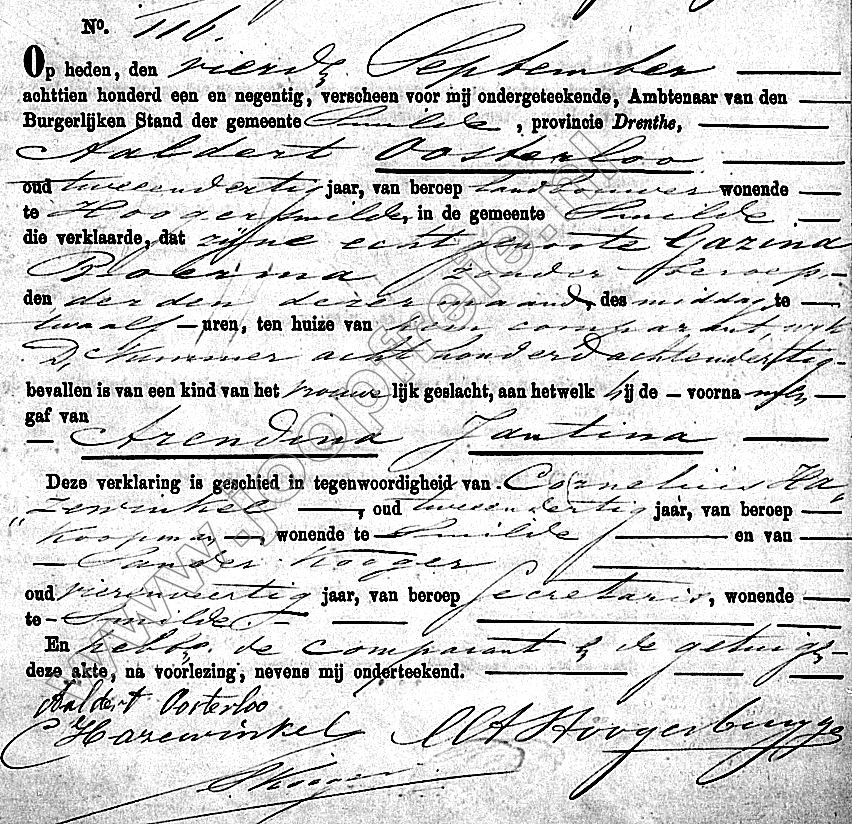 No. 116.
Op heden, den vierden September
achttien honderd een en negentig, verscheen voor mij ondergeteekende, Ambtenaar van den
Burgerlijken Stand der gemeente Smilde, provincie Drenthe,
Aaldert Oosterloo
oud tweeendertig jaar, van beroep landbouwer wonende
te Hoogersmilde, in de gemeente Smilde
die verklaarde, dat zijne echtgenoote Gazina
Bloerma zonder beroep
den derden dezer maand, des middags te
twaalf uren, ten huize van hem comparant, wijk
D, nummer acht honderd achtendertig
bevallen is van een kind van het vrouwelijk geslacht, aan hetwelk hij de voornamen
gaf van
Arendina Jantina
Deze verklaring is geschied in tegenwoordigheid van Cornelius Ha-
zewinkel, oud tweeendertig jaar, van beroep
Koopman, wonende te Smilde en van
Sander Kooger
oud vierenveertig jaar, van beroep Secretaris, wonende
te Smilde
En hebben de comparant & de getuigen
deze akte, na voorlezing, nevens mij onderteekend.
Aaldert Oosterloo
C Hazewinkel
S Kooger
www.joopfreie.nl